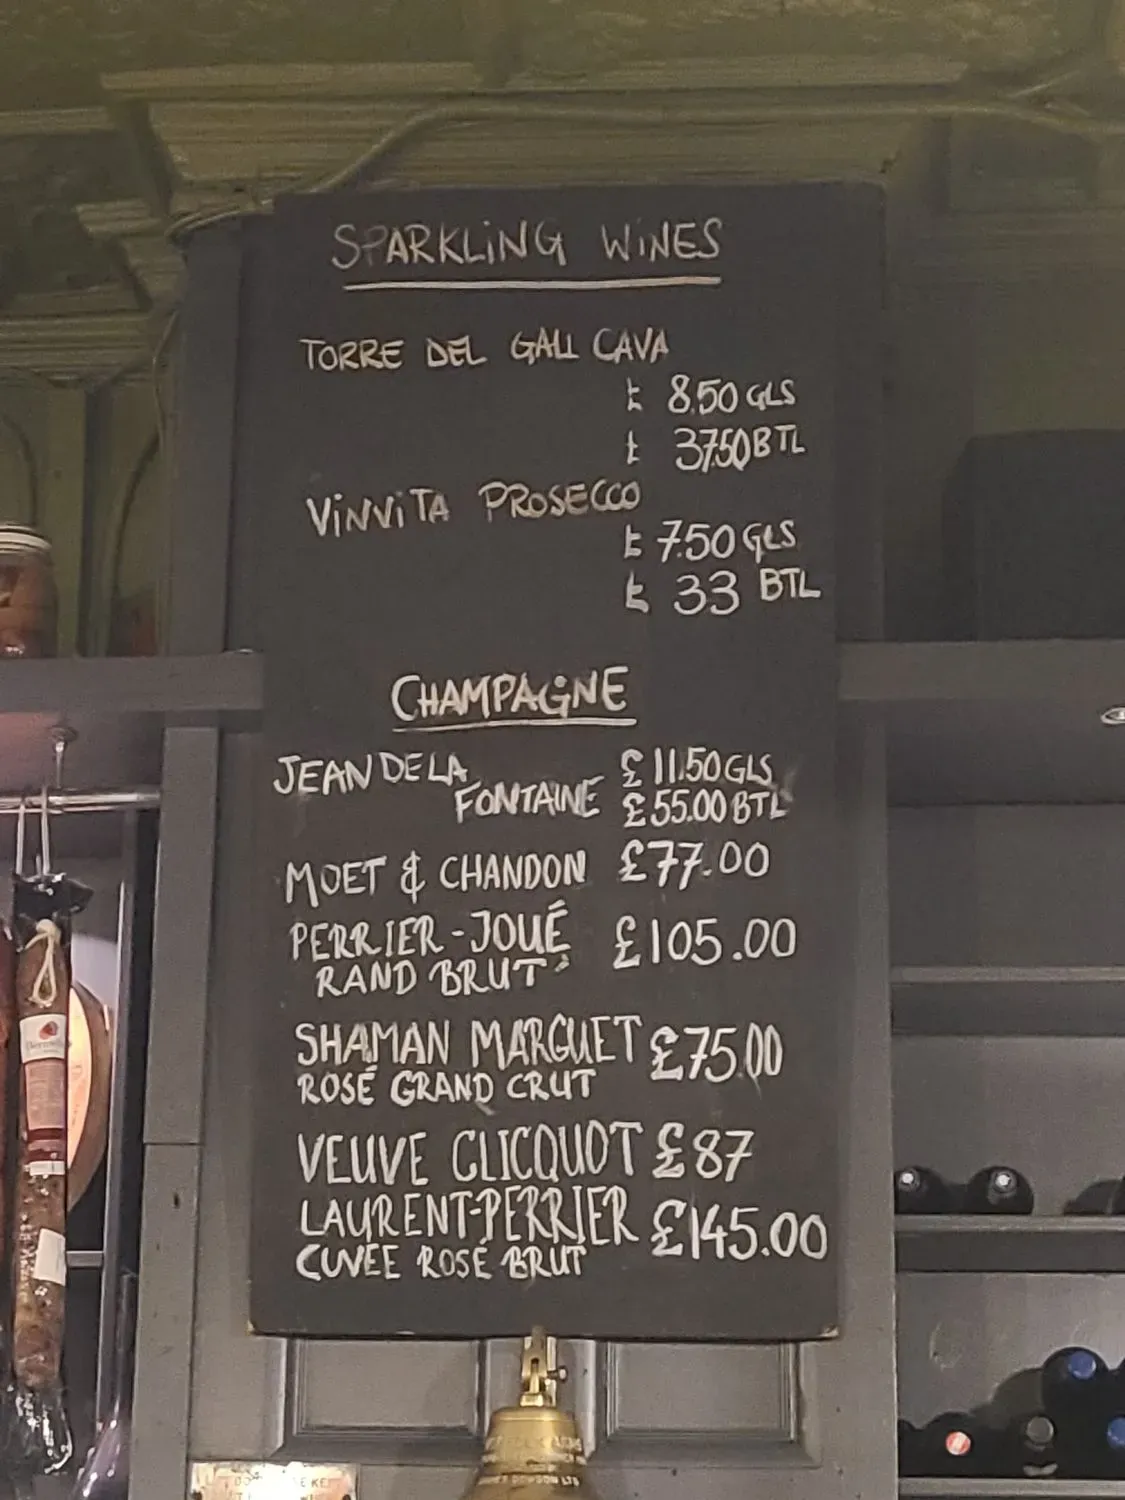 SPARKLiNG WiNES
TORRE DEL GALL CAVA
£ 8.50 GLS
£ 37.50 BTL
ViNViTA PROSECCO
£ 7.50 GLS
£ 33 BTL
CHAMPAGNE
JEAN DE LA £ 11.50 GLS
FONTAINE £ 55.00 BTL
MOET & CHANDON £77.00
PERRIER-JOUÉ £105.00
RAND BRUT
SHAMAN MARGUET £75.00
ROSÉ GRAND CRUT
VEUVE CLICQUOT £87
LAURENT-PERRIER £145.00
CUVÉE ROSÉ BRUT